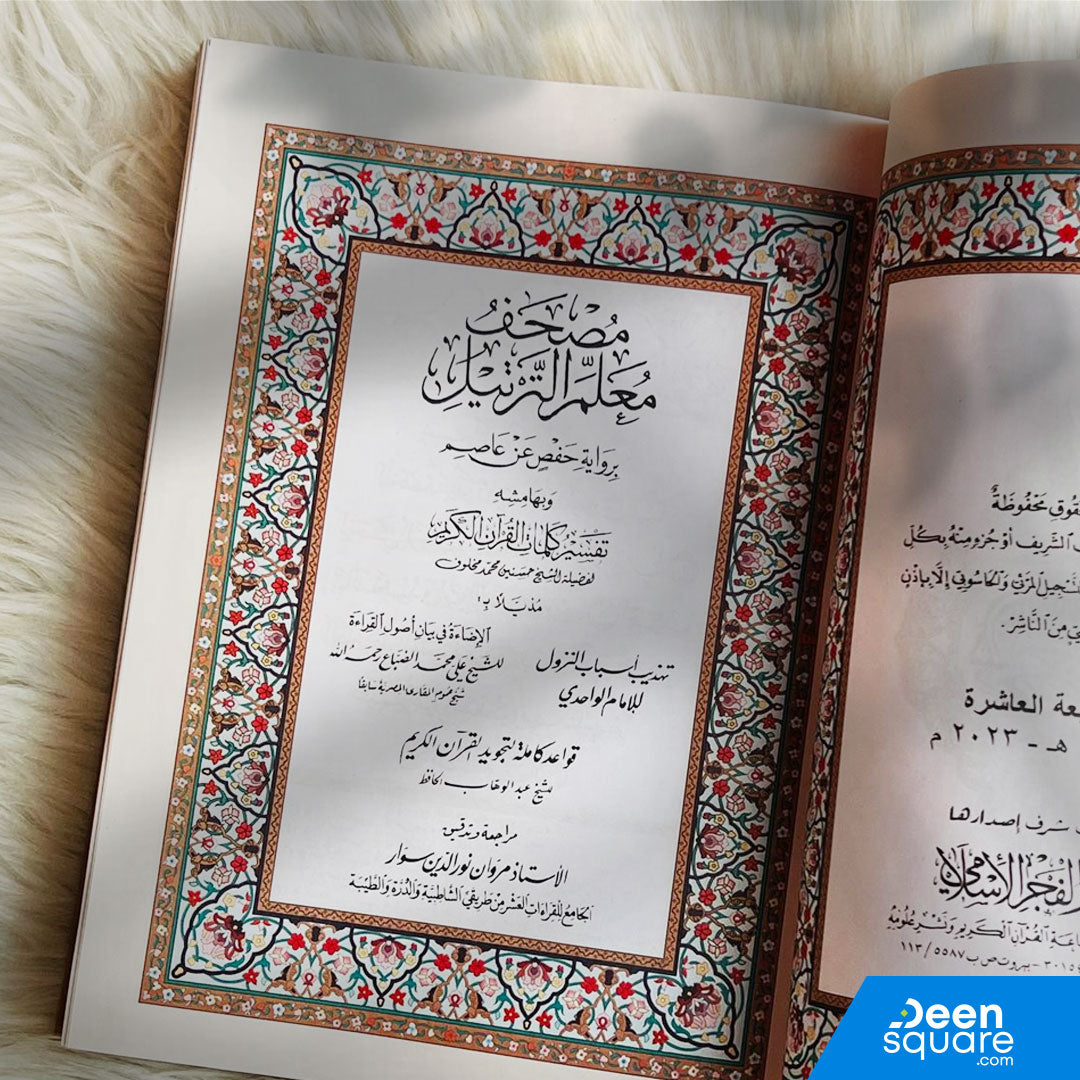 مُصْحَفُ
مُعَلِّمِ التَّرْتِيلِ
بِرِوَايَةِ حَفْصٍ عَنْ عَاصِمٍ
وَبِهَامِشِهِ
تَفْسِيرُ كَلِمَاتِ القُرْآنِ الْكَرِيمِ
لفضيلة الشيخ حسنين محمد مخلوف
مُذَيَّلاً بـ:
الإضَاءَةُ في بَيَانِ أُصُولِ القِرَاءَةِ
للشيخ علي محمد الضباع رحمه الله
شيخ عموم المقارئ المصرية سابقًا
تهذيب أسباب النزول
للإمام الواحدي
قواعد كاملة لتجويد القرآن الكريم
للشيخ عبد الوهاب الحافظ
مراجعة وتدقيق
الأستاذ مروان نور الدين سوار
الجَامِعُ لِلقِرَاءَاتِ العَشْرِ مِنْ طَرِيقَيِ الشَّاطِبِيَّةِ وَالدُّرَّةِ وَالطَّيِّبَةِ
مَحْفُوظَةٌ
الشَّرِيفِ أَوْ جُزْءٍ مِنْهُ بِكُلِّ
المَرْئِيِّ وَالحَاسُوبِيِّ إِلَّا بِإِذْنٍ
مِنَ النَّاشِرِ.
العاشرة
هـ - ٢٠٢٣ م
شرف إصدارها
الفَجْرِ الإسْلَامِيِّ
القُرْآنِ الْكَرِيمِ وَنَشْرِ عُلُومِهِ
بيروت ص ب ١١٣/٥٥٨٧
Deen
square
.com